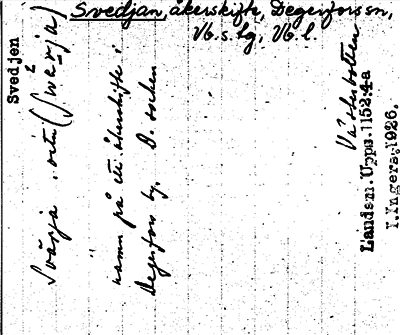 Svedjan, åkerskifte, Degerforssn,
Vb.s.tg, Vb.l.
Svedjen
namn på ett åkerskifte i
Degerfors by, D. socken
Västerbotten
Landsm. Upps. 152:4a
I. Ingers. 1926.